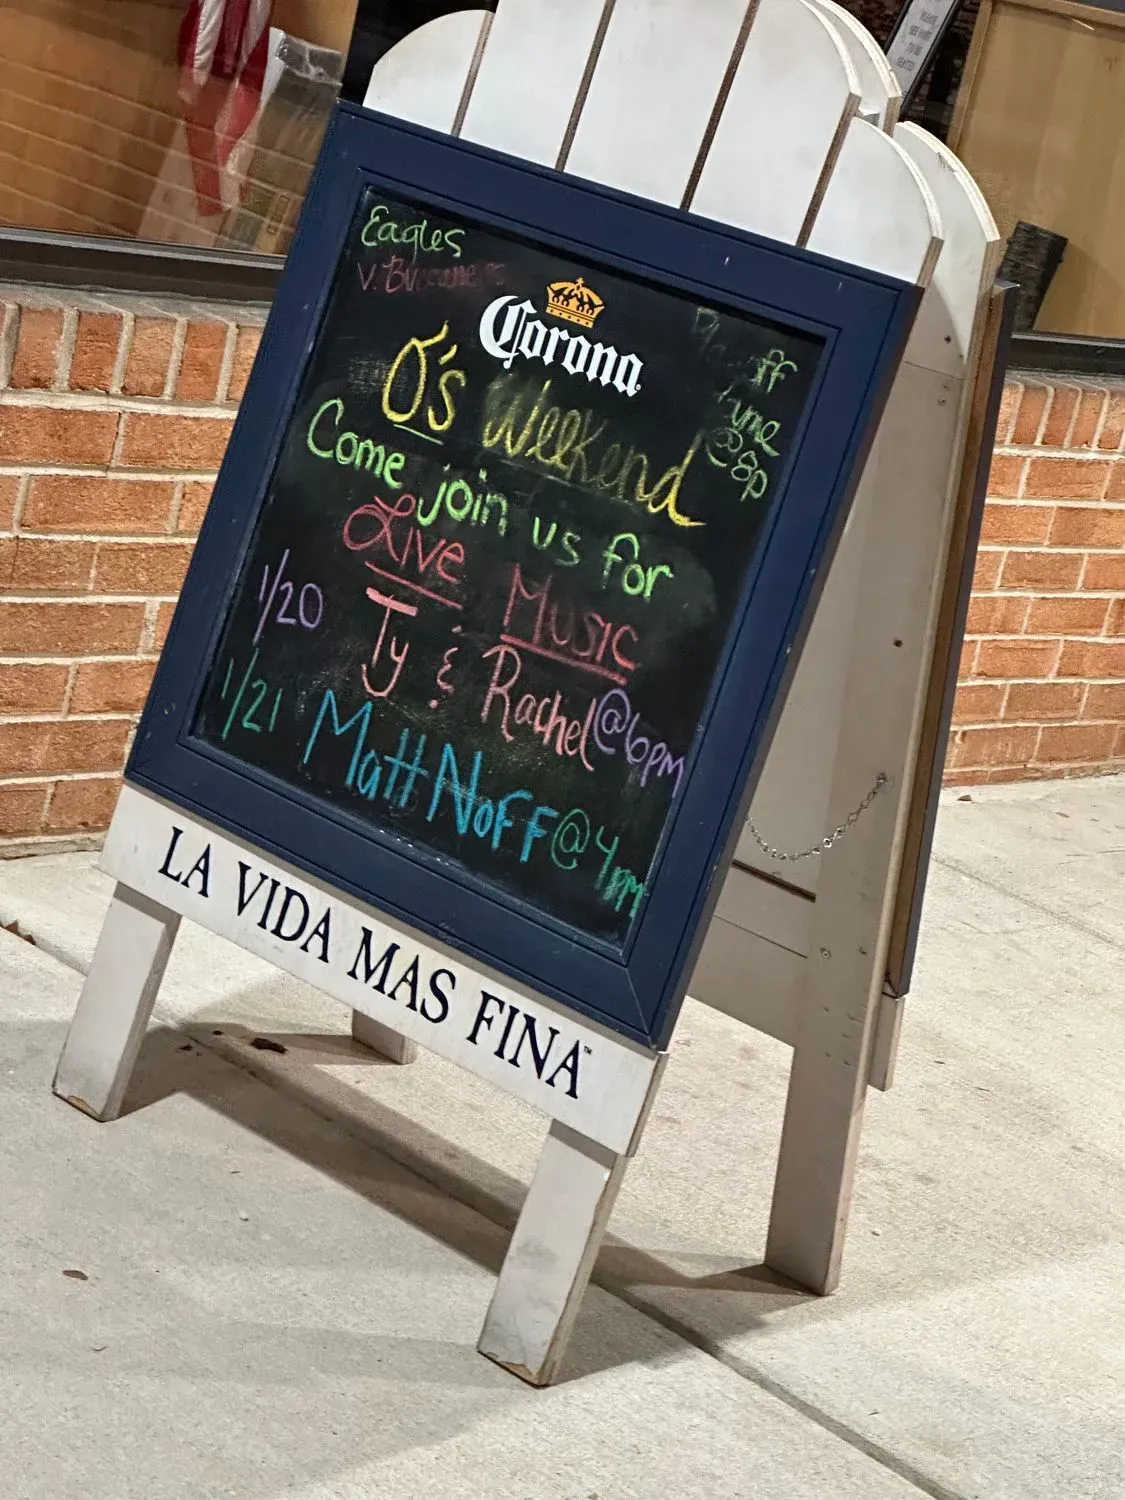 Eagles
v. Buccaneers
Corona
ff
Game
@8p
O's Weekend
Come join us for
Live Music
1/20
Ty & Rachel @6pm
1/21
Matt Noff @4pm
LA VIDA MAS FINA™
PLEASE
TO BE
SEATED